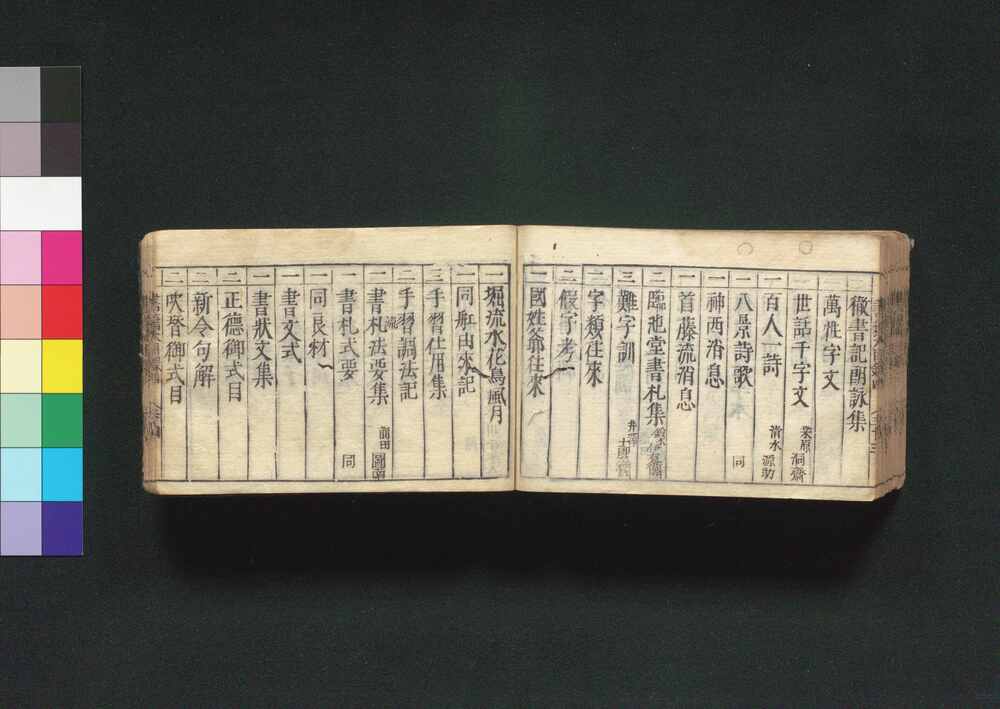 二 徹書記酬詠集
萬姓字文
二 世話千字文 栗原洞齋
一 百人一詩 清水源助
一 八景詩歌 同
一 神西消息
一 首藤流消息
二 臨池堂書札集
三 難字訓
二 字類往來
二 假字考
一 國姓爺往來
一 堀流水花鳥風月
一 同 由來記
三 手習仕用集
二 手習調法記
一 書札法要集 前田圖南
一 書札式要 同
一 同良材
一 書文式
一 書狀文集
二 正德御式目
二 新令句解
二 吹塵御式目